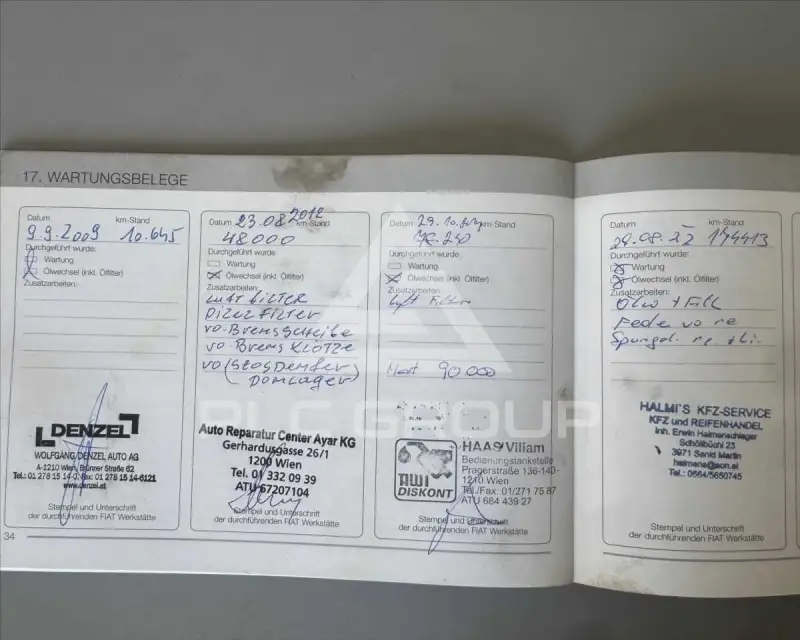 17. WARTUNGSBELEGE
Datum km-Stand
9.9.2009 10.645
Durchgeführt wurde:
Wartung
Ölwechsel (inkl. Ölfilter)
Zusatzarbeiten:
DENZEL
WOLFGANG DENZEL AUTO AG
A-1210 Wien, Brünner Straße 62
Tel.: 01 278 15 14-0, Fax: 01 278 15 14-6121
www.denzel.at
Stempel und Unterschrift
der durchführenden FIAT Werkstätte
34
Datum 23.08.2012
48000
Durchgeführt wurde:
Wartung
Ölwechsel (inkl. Ölfilter)
Zusatzarbeiten:
Luft FILTER
POLEN FILTER
vo-Bremsscheibe
vo BremsKlötze
vo (Stosdenfer)
Domlager)
Auto Reparatur Center Ayar KG
Gerhardusgasse 26/1
1200 Wien
Tel. 01 332 09 39
ATU 67207104
Stempel und Unterschrift
der durchführenden FIAT Werkstätte
Datum 29.10. km-Stand
Durchgeführt wurde:
Wartung
Ölwechsel (inkl. Ölfilter)
Zusatzarbeiten:
Luft Filter
90.000
AWI
DISKONT
HAAS Viliam
Bedienungstankstelle
Pragerstraße 136-140
1210 Wien
Tel./Fax: 01/271 75 87
ATU 684 439 27
Stempel und Unterschrift
der durchführenden FIAT Werkstätte
Datum km-Stand
29.08.22 144413
Durchgeführt wurde:
Wartung
Ölwechsel (inkl. Ölfilter)
Zusatzarbeiten:
Ölw + Filt
Fede vo re
Spurgel. re. + li.
HALMI'S KFZ-SERVICE
KFZ und REIFENHANDEL
Inh. Erwin Halmenschlager
Schölbüchl 23
3971 Sankt Martin
Tel.: 0664/5650745
Stempel und Unterschrift
der durchführenden FIAT Werkstätte
PLC GROUP